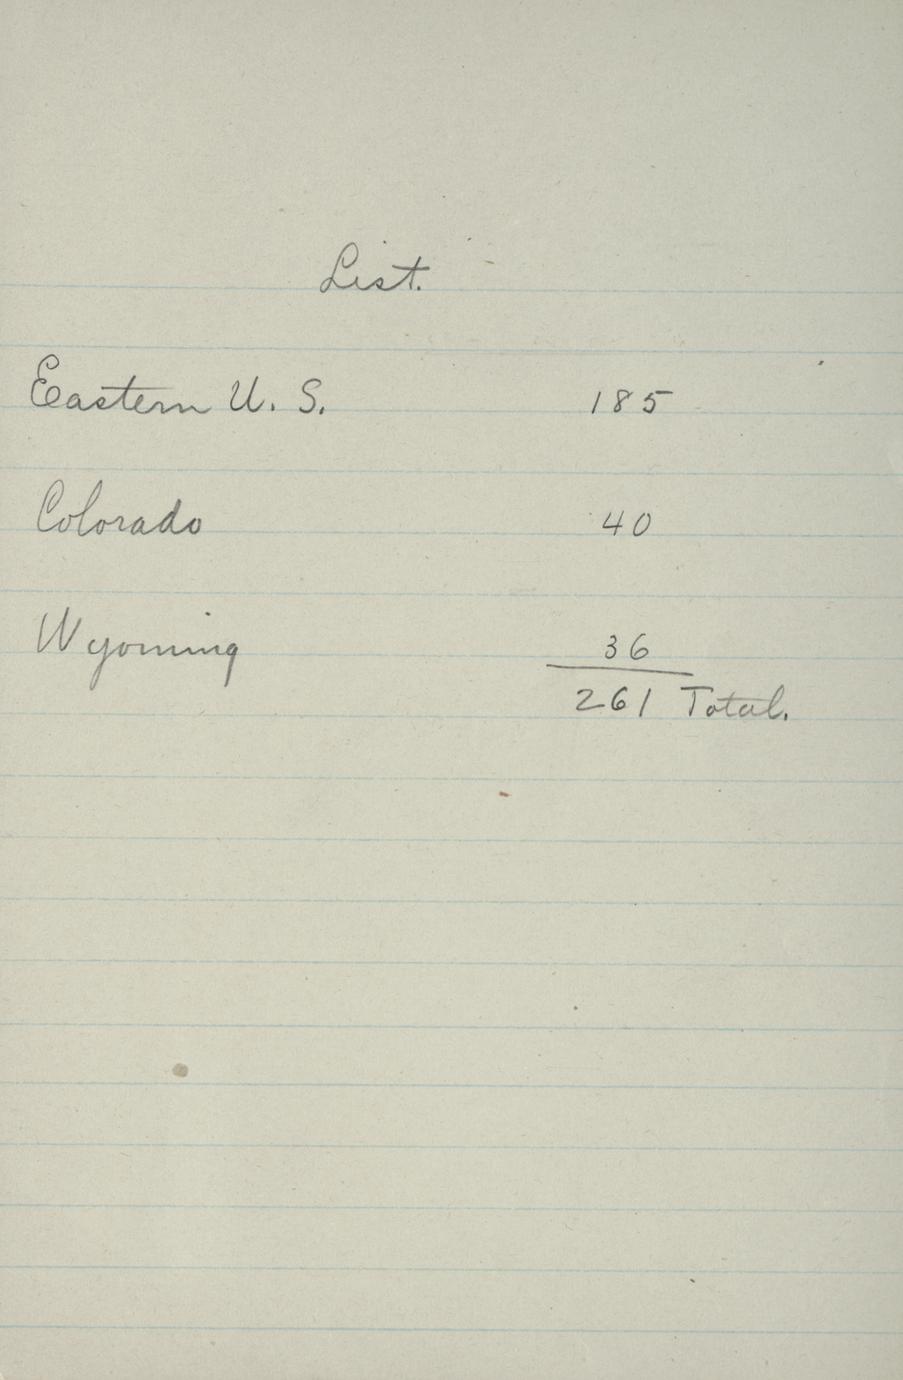 List.
Eastern U. S. 185
Colorado 40
Wyoming 36
261 Total.